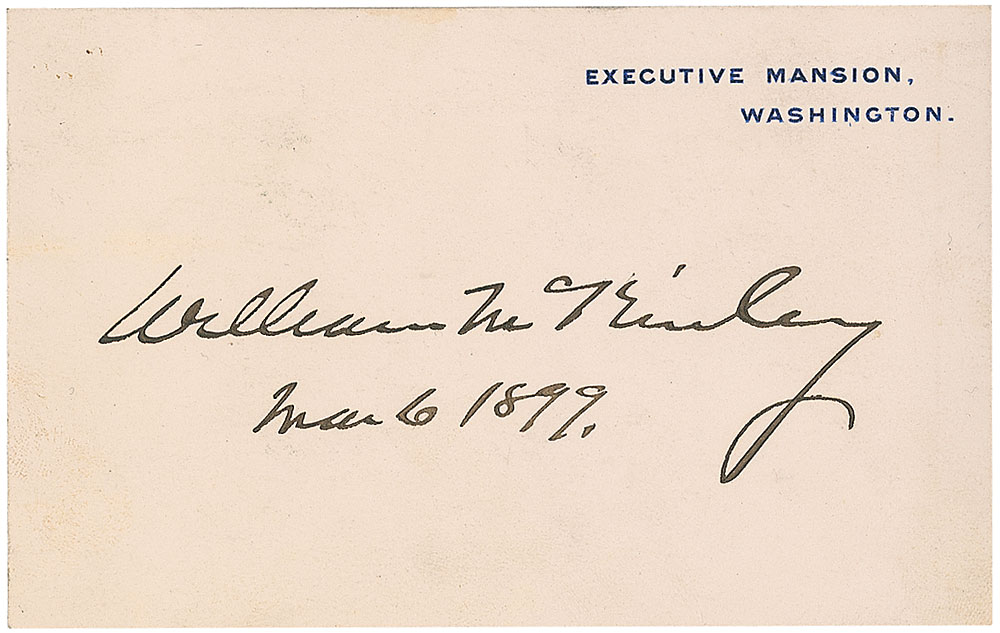 EXECUTIVE MANSION,
WASHINGTON.
William McKinley
Mar 6 1899.